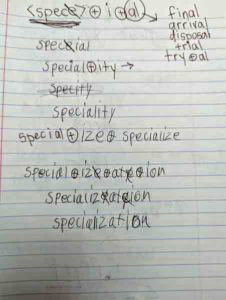 <spece> ⊕ i ⊕ al → final
arrival
disposal
trial
try⊕al
special
special⊕ity →
specity
speciality
special⊕ize⊕ specialize
special⊕ize⊕ate⊕ion
specializateion
specialization